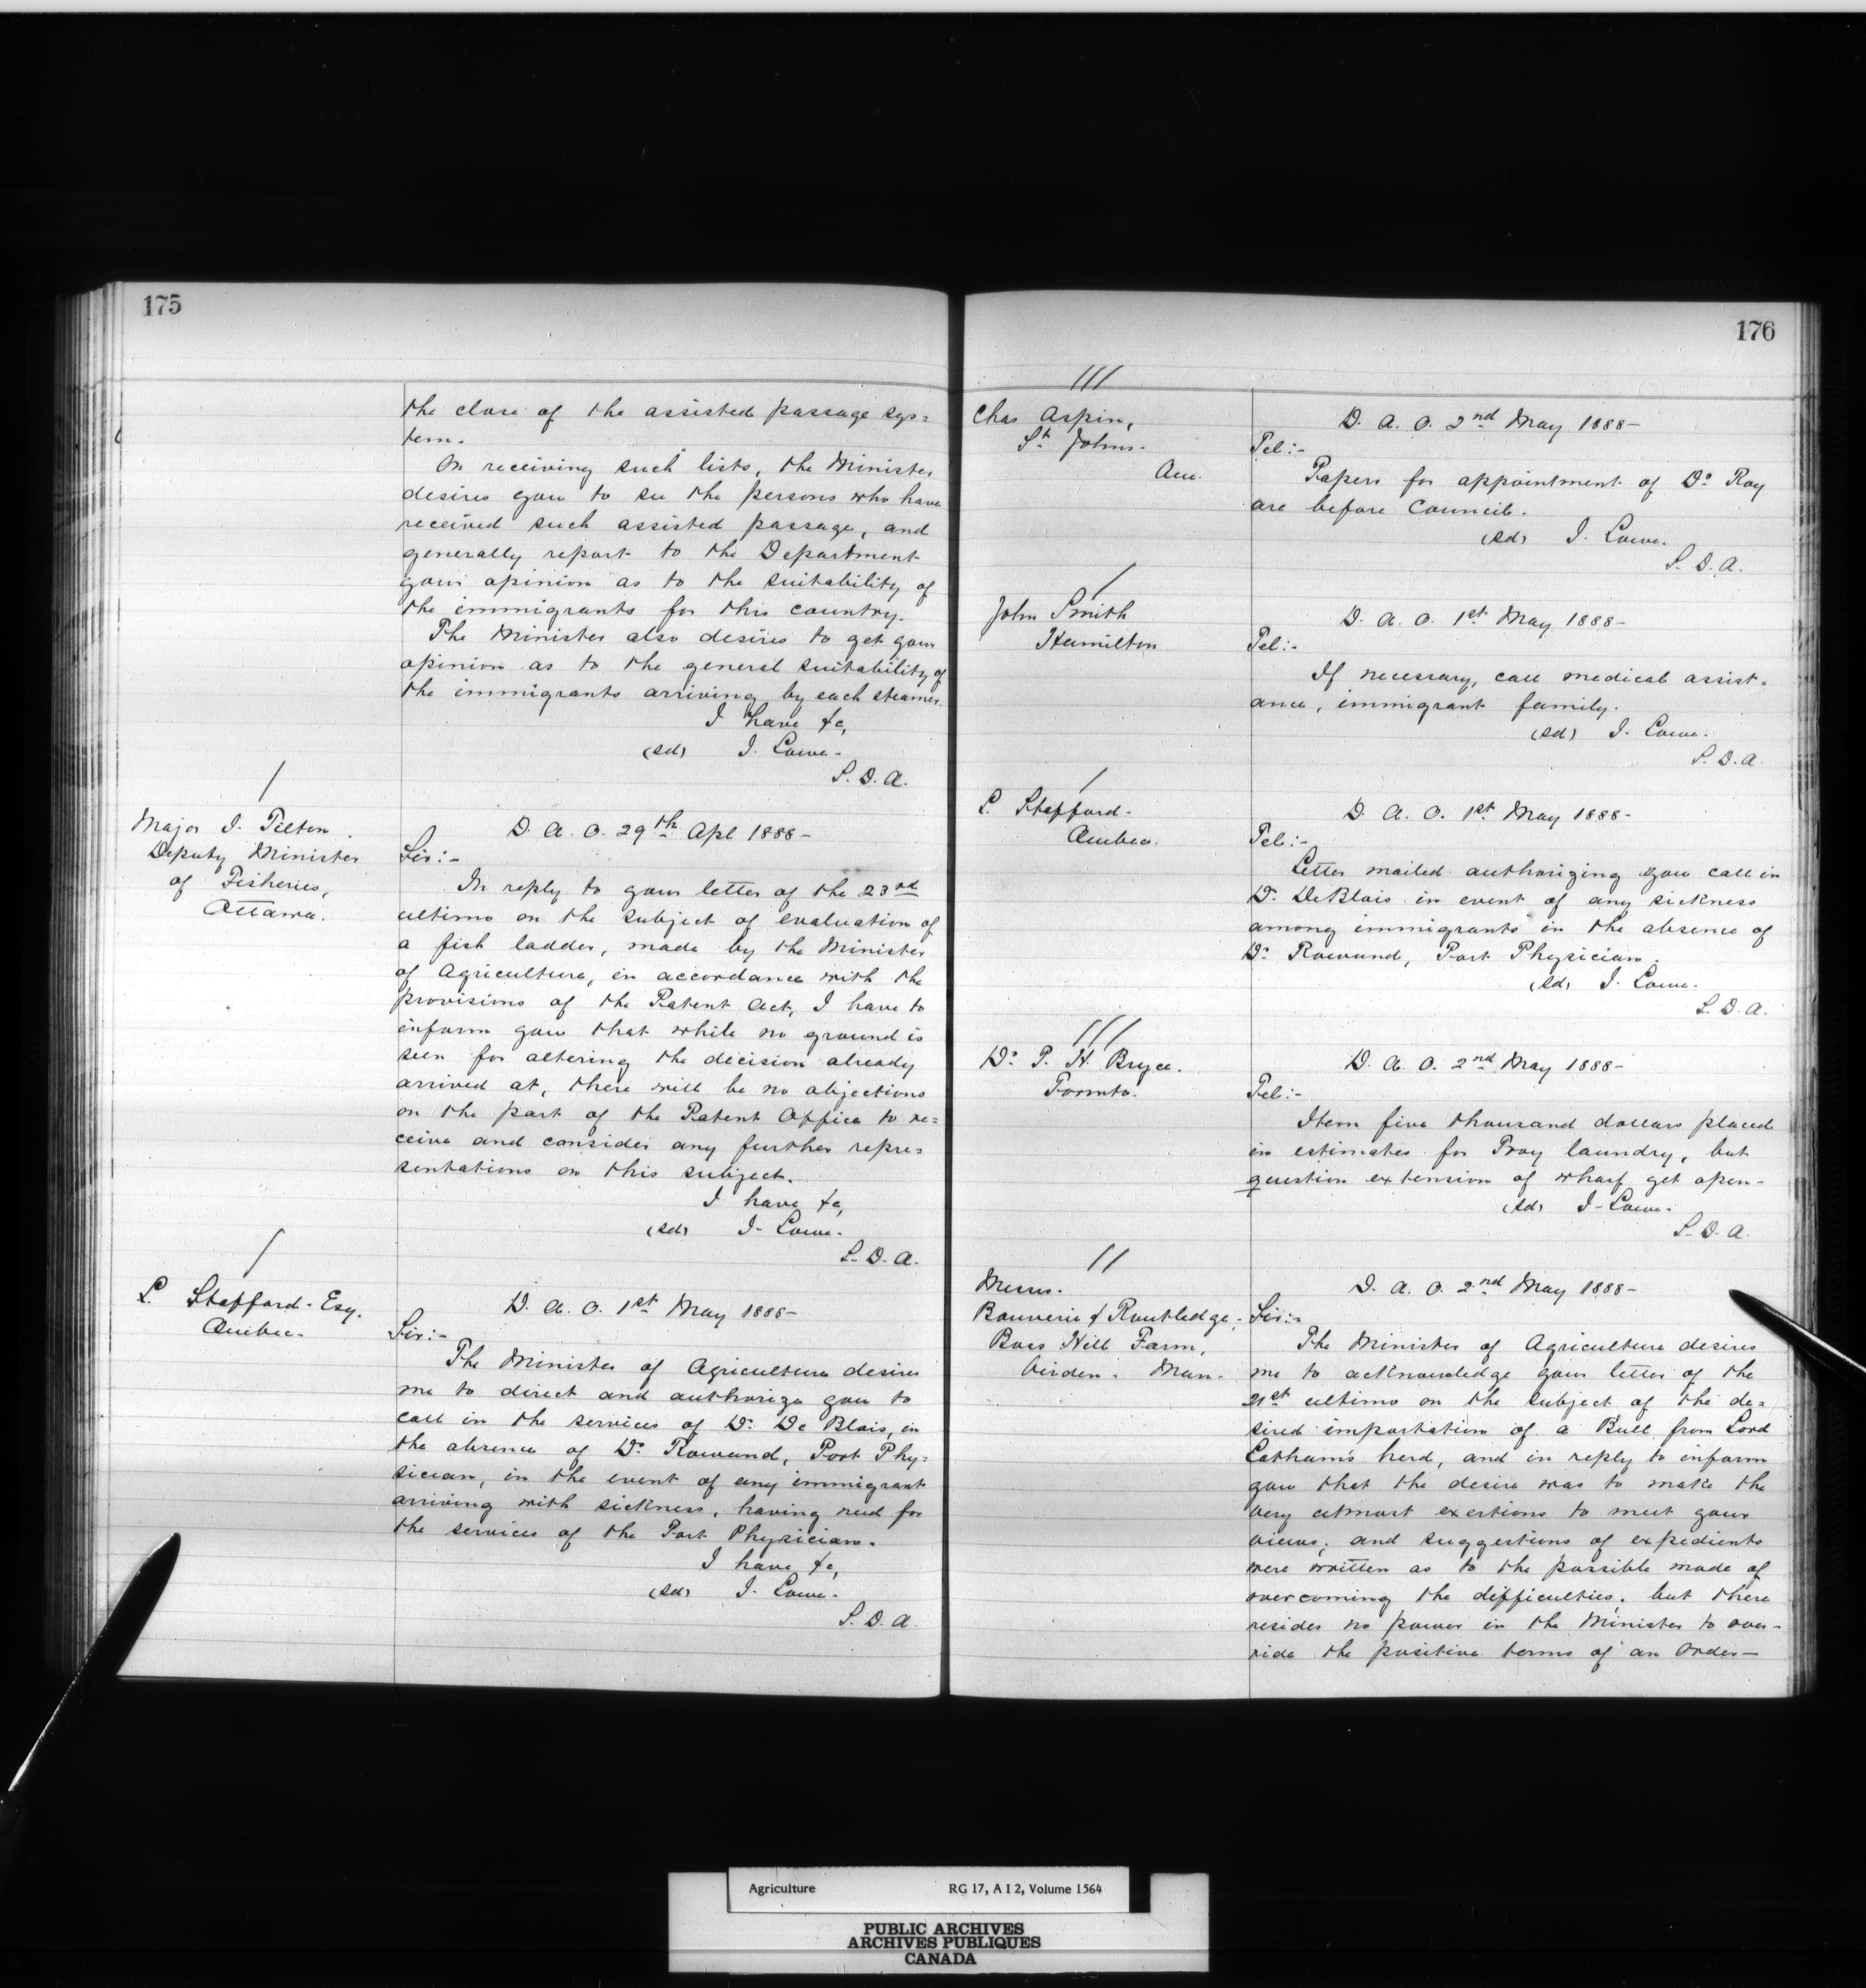 175
the close of the assisted passage sys=
tem.
On receiving such lists, the Minister
desires you to see the persons who have
received such assisted passage, and
generally report to the Department
your opinion as to the suitability of
the immigrants for this country.
The Minister also desires to get your
opinion as to the general suitability of
the immigrants arriving by each steamer.
I have &c,
(sd) J. Lowe.
S. D. A.
Major J. Tilton
Deputy Minister
of Fisheries,
Ottawa.
D. A. O. 29th Apl 1888-
Sir:-
In reply to your letter of the 23rd
ultimo on the subject of evaluation of
a fish ladder, made by the Minister
of Agriculture, in accordance with the
provisions of the Patent Act, I have to
inform you that while no ground is
seen for altering the decision already
arrived at, there will be no objections
on the part of the Patent Office to re=
ceive and consider any further repre=
sentations on this subject.
I have &c,
(sd) J. Lowe.
S. D. A.
L. Stafford. Esq.
Quebec.
D. A. O. 1st May 1888-
Sir:-
The Minister of Agriculture desires
me to direct and authorize you to
call in the services of Dr. De Blois, in
the absence of Dr. Rowand, Port Phy=
sician, in the event of any immigrant
arriving with sickness, having need for
the services of the Port Physician.
I have &c,
(sd) J. Lowe.
S. D. A.
176
Chas Aspin,
St Johns.
Que.
D. A. O. 2nd May 1888-
Tel:-
Papers for appointment of Dr Roy
are before Council.
(sd) J. Lowe.
S. D. A.
John Smith
Hamilton
D. A. O. 1st May 1888-
Tel:-
If necessary, call medical assist=
ance, immigrant family.
(sd) J. Lowe.
S. D. A.
L. Stafford.
Quebec.
D. A. O. 1st May 1888-
Tel:-
Letter mailed authorizing you call in
Dr. DeBlois in event of any sickness
among immigrants in the absence of
Dr. Rowand, Port Physician.
(sd) J. Lowe.
S. D. A.
Dr. P. H. Bryce.
Toronto.
D. A. O. 2nd May 1888-
Tel:-
Item five thousand dollars placed
in estimates for Troy laundry, but
question extension of wharf yet open-
(sd) J. Lowe.
S. D. A.
Messrs.
Bouverie & Routledge,
Boss Hill Farm,
Virden. Man.
D. A. O. 2nd May 1888-
Sir:-
The Minister of Agriculture desires
me to acknowledge your letter of the
21st ultimo on the subject of the de=
sired importation of a Bull from Lord
Lathom's herd, and in reply to inform
you that the desire was to make the
very utmost exertions to meet your
views, and suggestions of expedients
were written as to the possible mode of
overcoming the difficulties, but there
resides no power in the Minister to over-
ride the positive terms of an Order-
Agriculture RG 17, A I 2, Volume 1564
PUBLIC ARCHIVES
ARCHIVES PUBLIQUES
CANADA